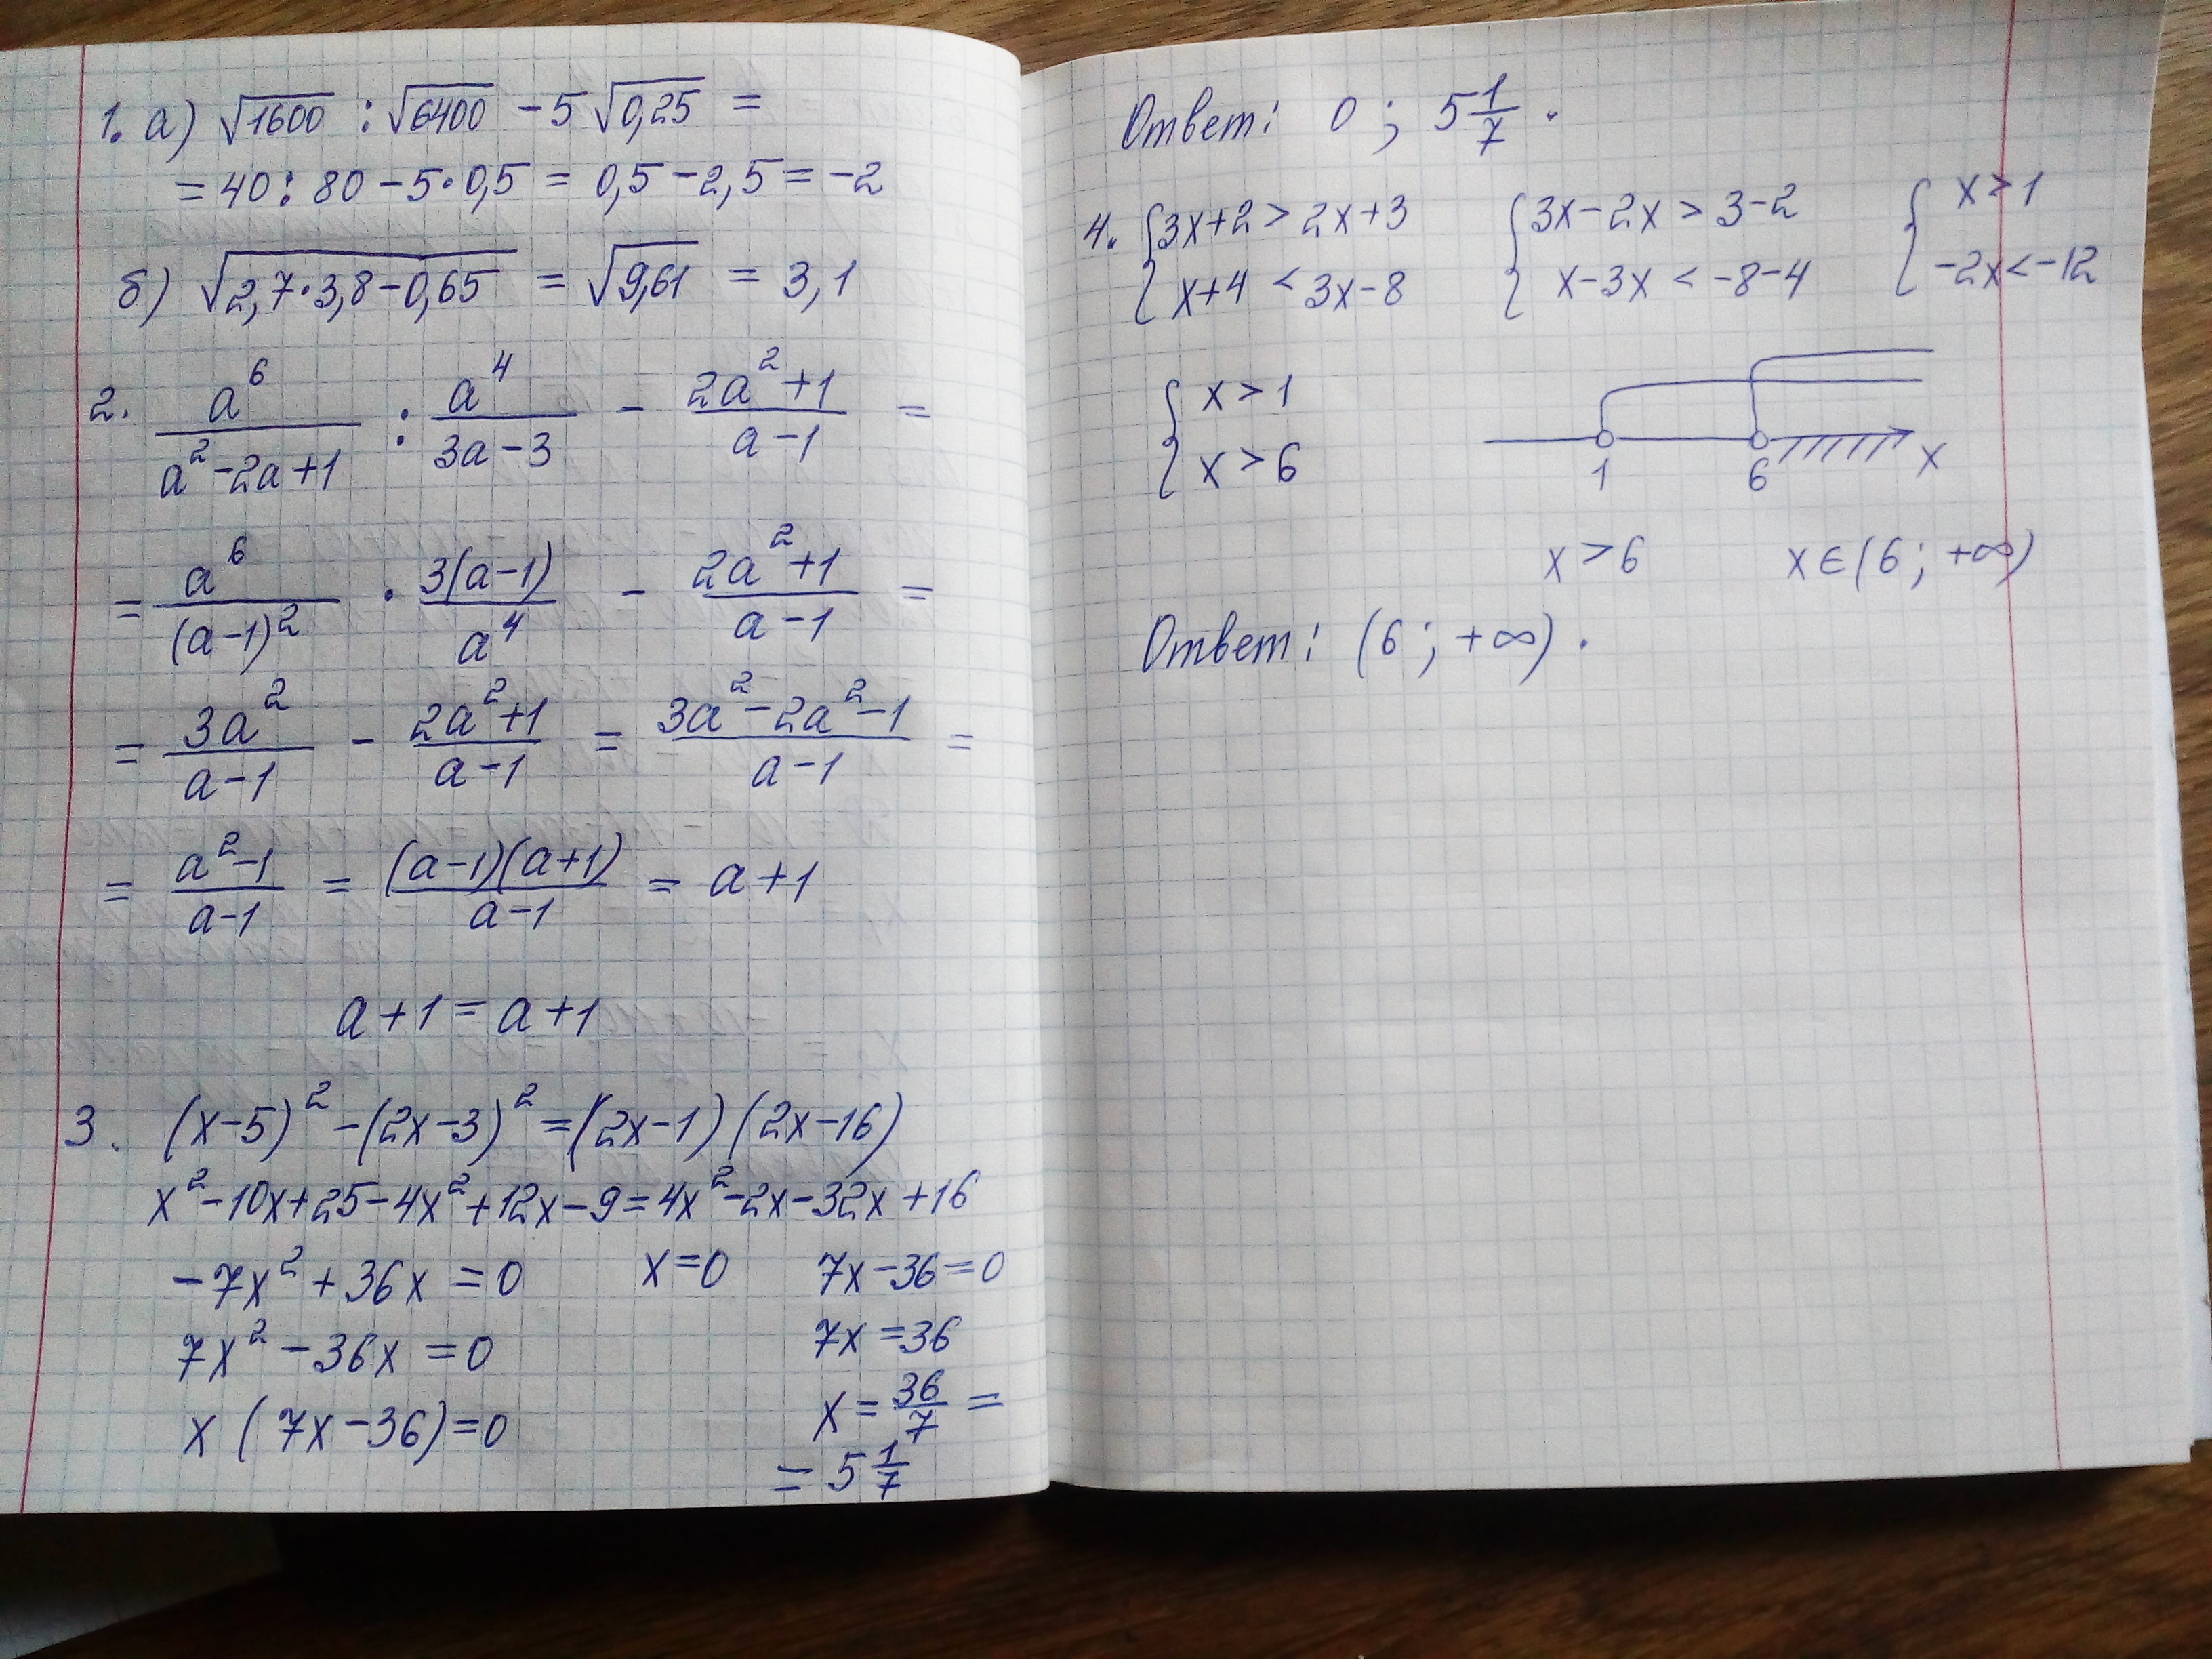 1. а) √1600 : √6400 - 5 √0,25 =
= 40 : 80 - 5·0,5 = 0,5 - 2,5 = -2
б) √2,7·3,8-0,65 = √9,61 = 3,1
2. a⁶/(a²-2a+1) : a⁴/(3a-3) - (2a²+1)/(a-1) =
= a⁶/(a-1)² · 3(a-1)/a⁴ - (2a²+1)/(a-1) =
= 3a²/(a-1) - (2a²+1)/(a-1) = (3a²-2a²-1)/(a-1) =
= (a²-1)/(a-1) = (a-1)(a+1)/(a-1) = a+1
a+1 = a+1
3. (x-5)² - (2x-3)² = (2x-1)(2x-16)
x²-10x+25-4x²+12x-9=4x²-2x-32x+16
-7x²+36x=0 x=0 7x-36=0
7x²-36x=0 7x=36
x(7x-36)=0 x=36/7=
=5 1/7
Ответ: 0; 5 1/7.
4. {3x+2>2x+3 {3x-2x>3-2 {x>1
x+4<3x-8 x-3x<-8-4 -2x<-12
{x>1
x>6
1 6 x
x>6 x∈(6; +∞)
Ответ: (6; +∞).